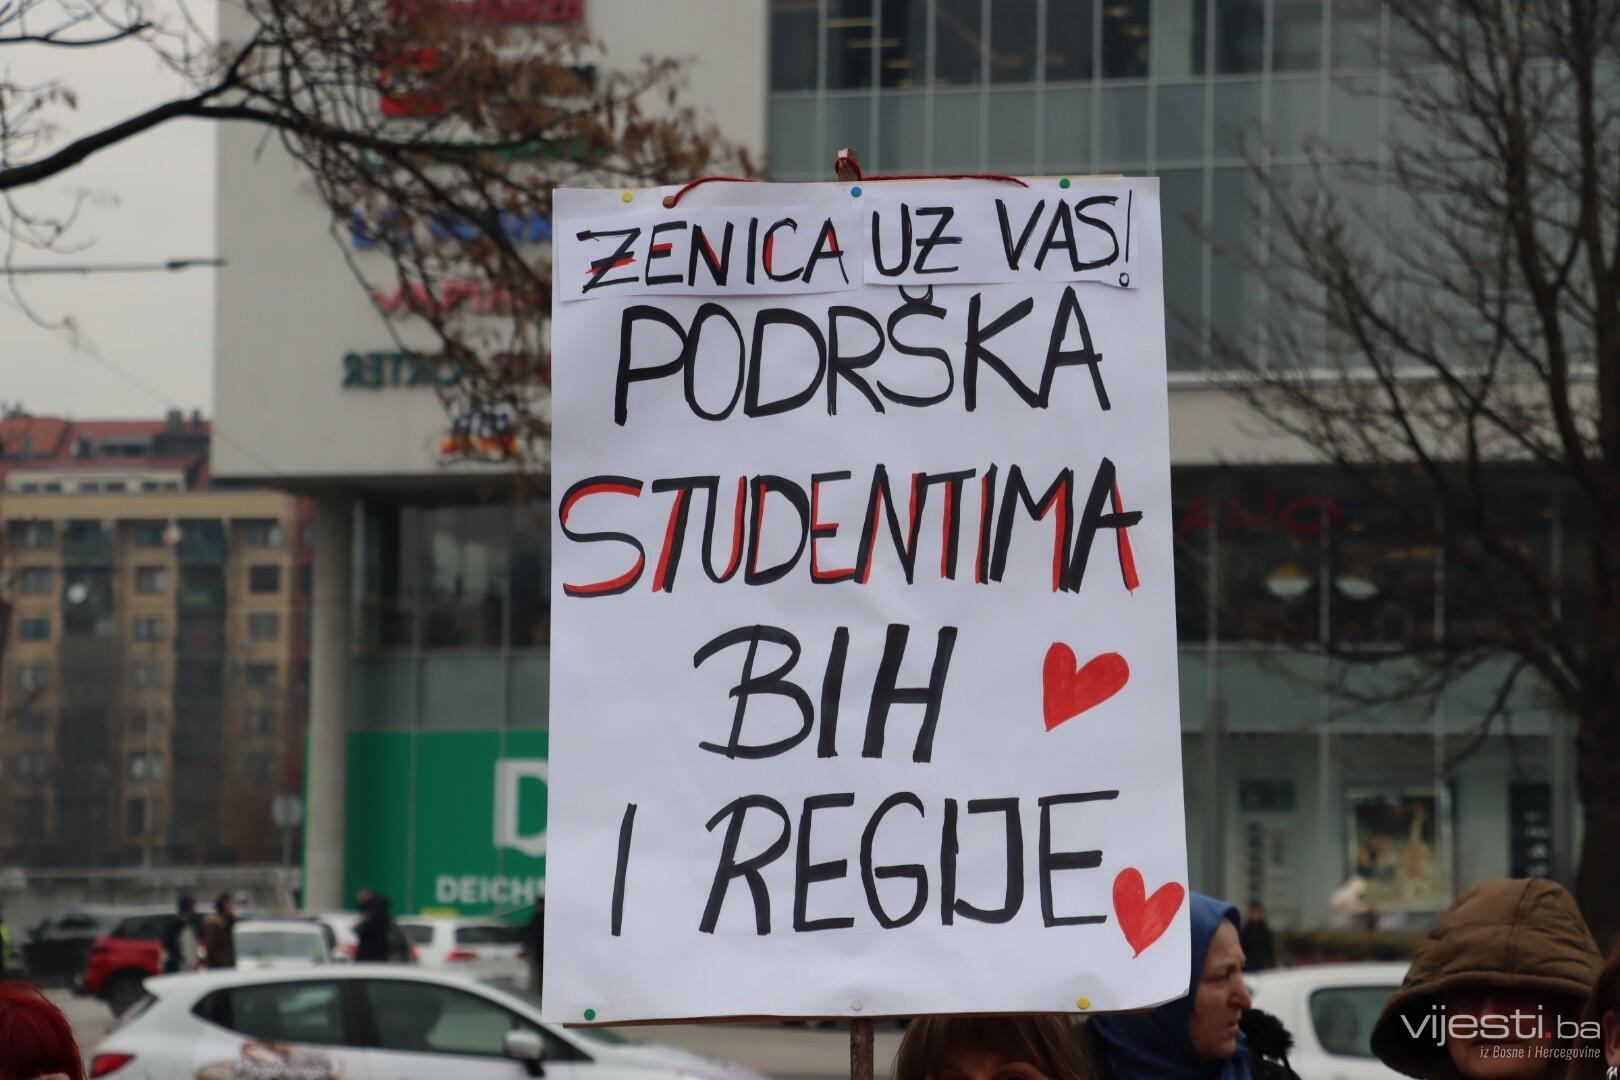 ZENICA UZ VAS!
PODRŠKA
STUDENTIMA
BIH
I REGIJE
DEICH
vijesti.ba
iz Bosne i Hercegovine